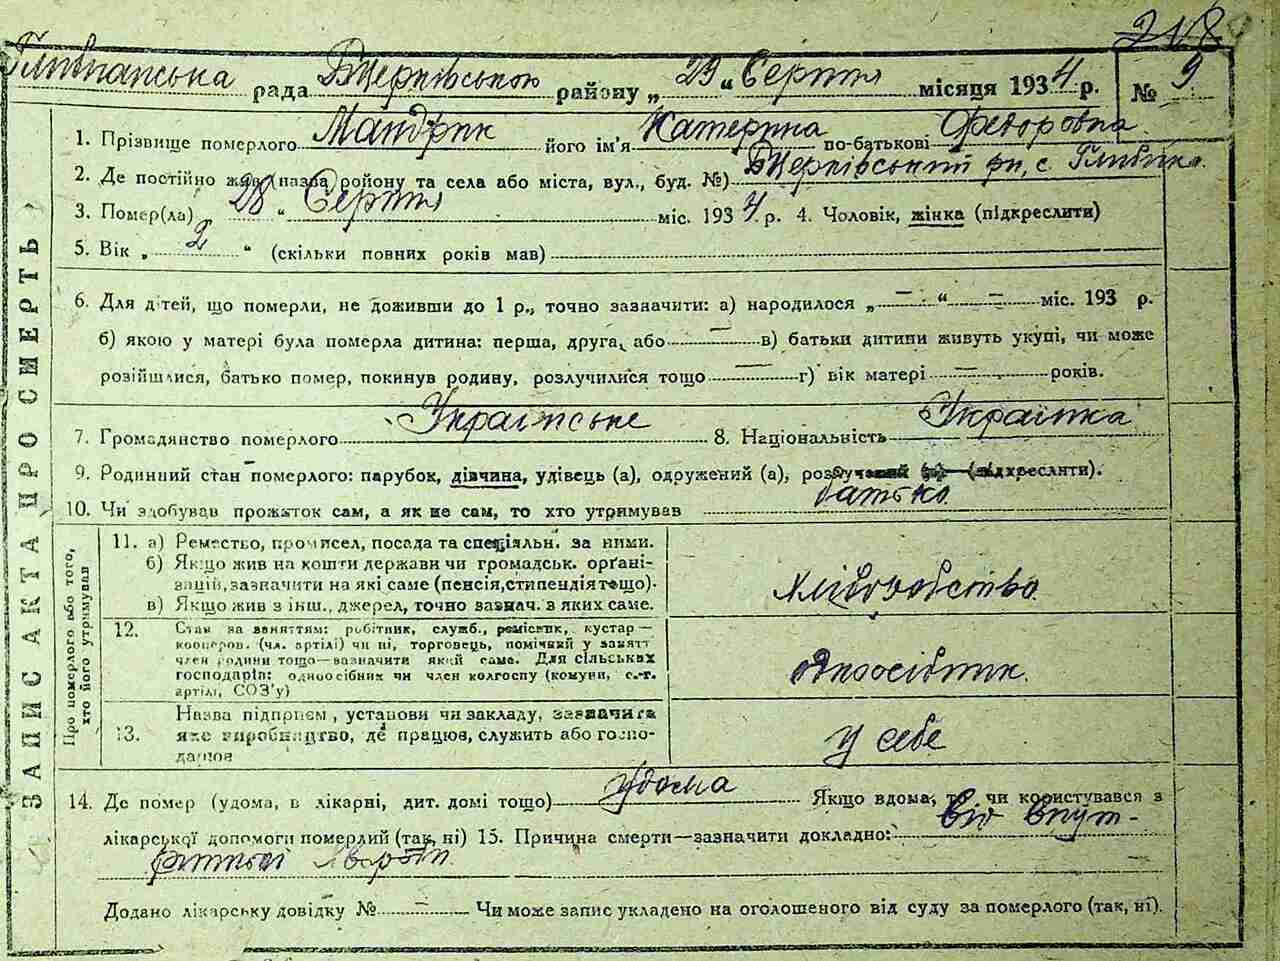 218
Глибчанська рада БЦерківського району „ 29 “ Серпня місяця 1934 р. № 9
ЗАПИС АКТА ПРО СМЕРТЬ
1. Прізвище померлого Мандрик його ім'я Катерина по-батькові Федоровна
2. Де постійно жив (назва району та села або міста, вул., буд. №) БЦерківський рн, с
3. Помер(ла) „ 28 “ Серпня міс. 1934 р. 4. Чоловік, жінка (підкреслити)
5. Вік „ 2 “ (скільки повних років мав)
6. Для дітей, що померли, не доживши до 1 р., точно зазначити: а) народилося „ — “ — міс. 193 р.
б) якою у матері була померла дитина: перша, друга, або — в) батьки дитини живуть укупі, чи може
розійшлися, батько помер, покинув родину, розлучилися тощо — г) вік матері — років.
7. Громадянство померлого Українське 8. Національність Українка
9. Родинний стан померлого: парубок, дівчина, удівець (а), одружений (а), розлучений (а) (підкреслити).
10. Чи здобував прожиток сам, а як не сам, то хто утримував батько
Про померлого або того, хто його утримував
11. а) Ремество, промисел, посада та спеціяльн. за ними.
б) Якщо жив на кошти держави чи громадськ. орґані-
зацій, зазначити на які саме (пенсія, стипендія тощо).
в) Якщо жив з інш., джерел, точно зазнач. з яких саме.
хліборобство
12. Стан за заняттям: робітник, служб., ремісник, кустар—
кооперов. (чл. артілі) чи ні, торговець, помічний у занятт
член родини тощо—зазначити який саме. Для сільських
господарів: одноосібних чи член колгоспу (комуни, с.-г.
артілі, СОЗ'у)
Одноосібник
13. Назва підприєм, установи чи закладу, зазначити
яке виробництво, де працює, служить або госпо-
дарює
у себе
14. Де помер (удома, в лікарні, дит. домі тощо) удома Якщо вдома, то чи користувався з
лікарської допомоги померлий (так, ні) 15. Причина смерти—зазначити докладно: від внут-
Додано лікарську довідку № — Чи може запис укладено на оголошеного від суду за померлого (так, ні).